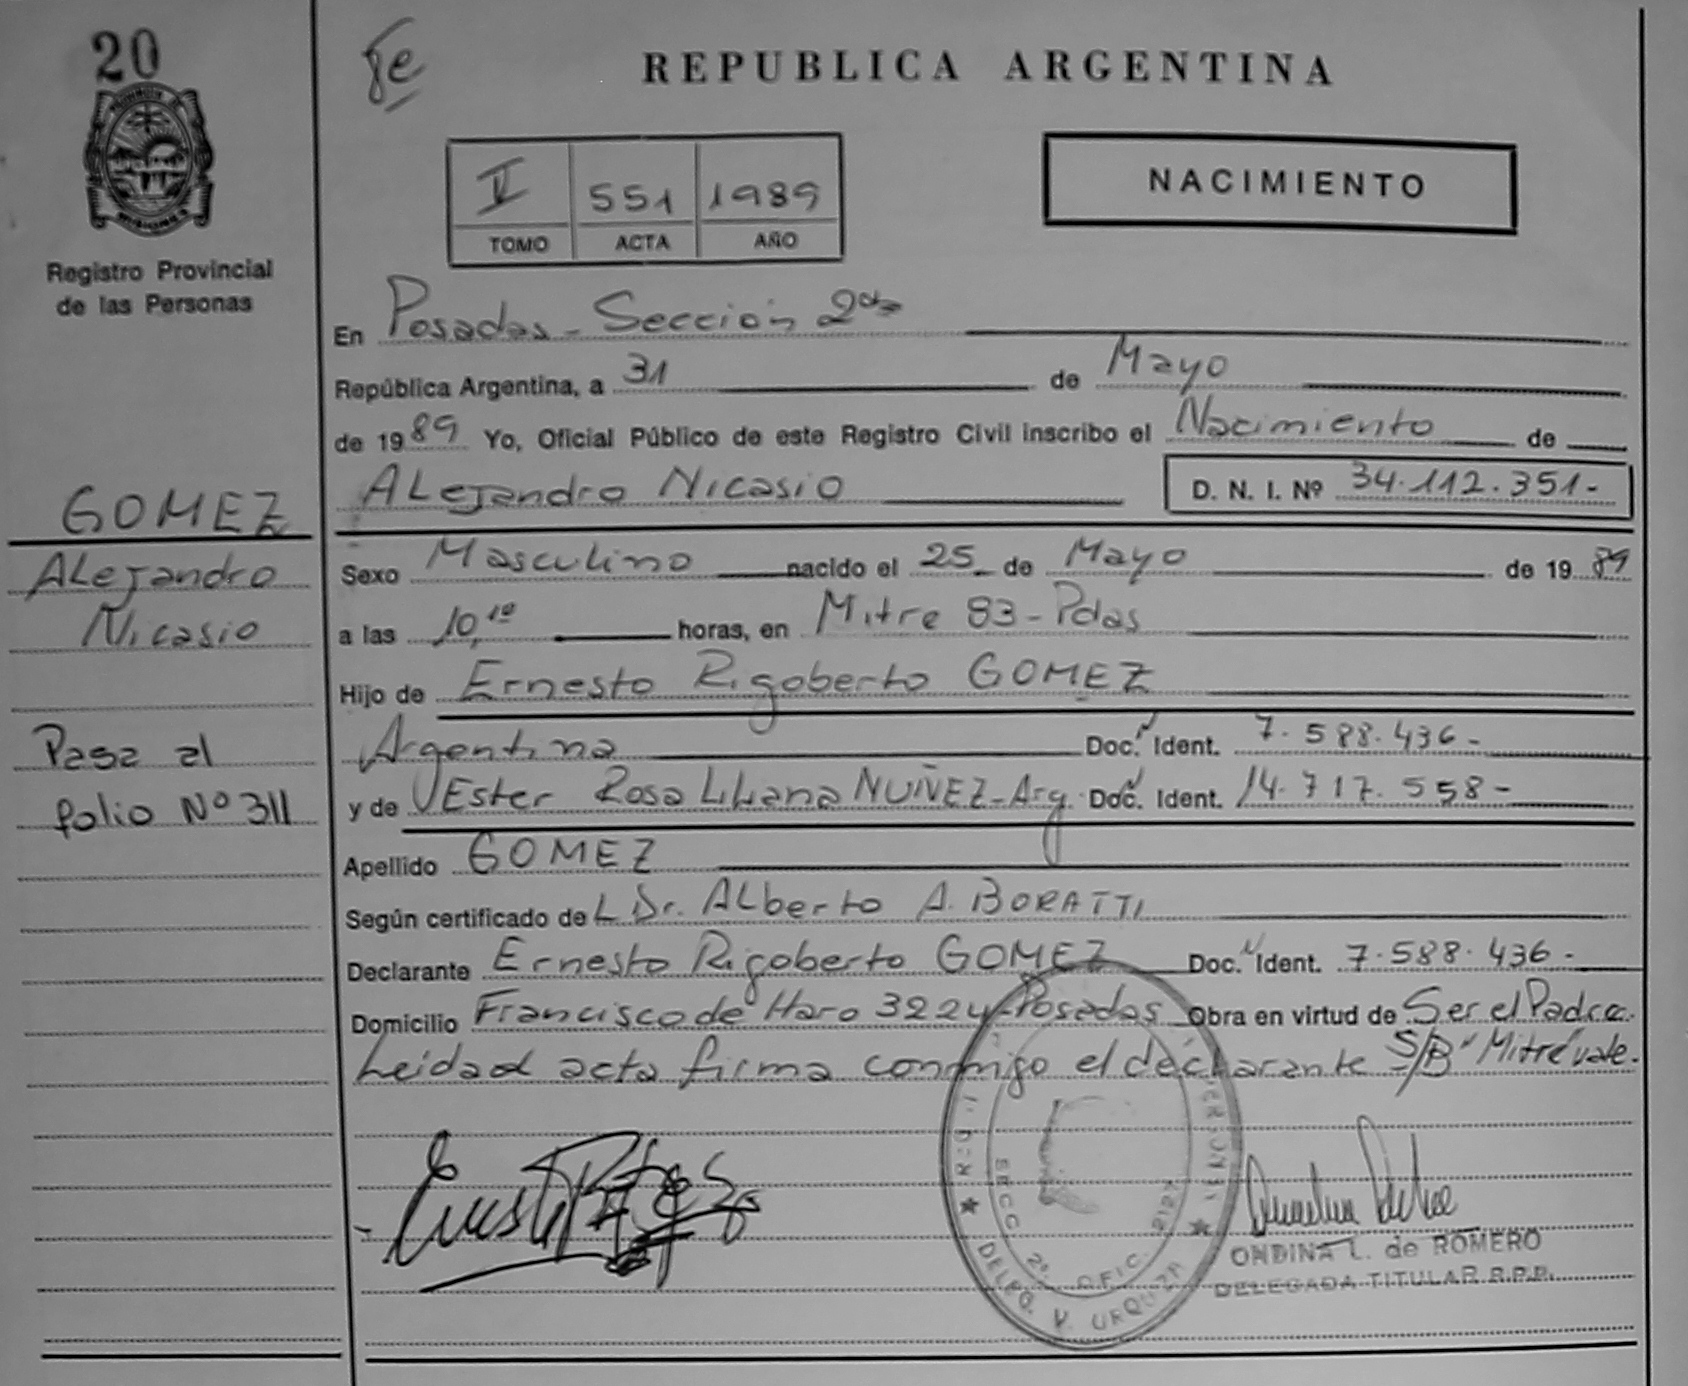 20
REPUBLICA ARGENTINA
V 551 1989
TOMO ACTA AÑO
NACIMIENTO
Registro Provincial
de las Personas
En Posadas - Sección 2da
República Argentina, a 31 de Mayo
de 1989 Yo, Oficial Público de este Registro Civil inscribo el Nacimiento de
Alejandro Nicasio D. N. I. Nº 34.112.351.-
GOMEZ
Alejandro
Nicasio
Sexo Masculino nacido el 25 de Mayo de 1989
a las 10,10 horas, en Mitre 83 - Pdas
Hijo de Ernesto Rigoberto GOMEZ
Argentina Doc. Ident. 7.588.436-
y de Ester Rosa Liliana NUÑEZ - Arg. Doc. Ident. 14.717.558-
Pasa al
folio Nº 311
Apellido GOMEZ
Según certificado de L Dr. Alberto A. BORATTI
Declarante Ernesto Rigoberto GOMEZ Doc. Ident. 7.588.436-
Domicilio Francisco de Haro 3224 - Posadas Obra en virtud de Ser el Padre.
Leída el acta firma conmigo el declarante S/B "Mitre" vale.
SECC 2ª OFIC. 2121
DELEG. V. URQUIZA
ONDINA L. de ROMERO
DELEGADA TITULAR R.P.P.